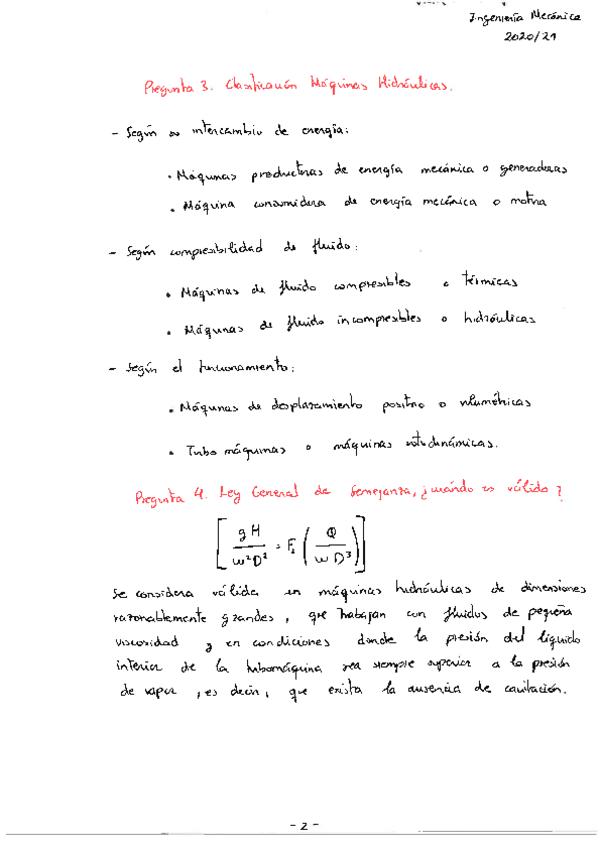 Ingeniería Mecánica
2020/21
Pregunta 3. Clasificación Máquinas Hidráulicas.
- Según su intercambio de energía:
• Máquinas productoras de energía mecánica o generadoras
• Máquina consumidora de energía mecánica o motora
- Según compresibilidad de fluido:
• Máquinas de fluido compresibles o térmicas
• Máquinas de fluido incompresibles o hidráulicas
- Según el funcionamiento:
• Máquinas de desplazamiento positivo o volumétricas
• Turbo máquinas o máquinas rotodinámicas.
Pregunta 4. Ley General de Semejanza, ¿cuándo es válido?
[gH / w²D² = F₂ (Q / w D³)]
Se considera válida en máquinas hidráulicas de dimensiones
razonablemente grandes, que trabajan con fluidos de pequeña
viscosidad y en condiciones donde la presión del líquido
interior de la turbomáquina sea siempre superior a la presión
de vapor, es decir, que exista la ausencia de cavitación.
- 2 -